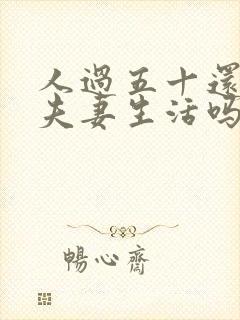 人過五十還
夫妻生活嗎
暢心齋